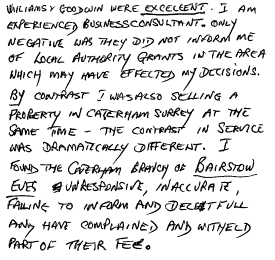 WILLIAMS & GOODWIN WERE EXCELLENT. I AM
EXPERIENCED BUSINESS CONSULTANT. ONLY
NEGATIVE WAS THEY DID NOT INFORM ME
OF LOCAL AUTHORITY GRANTS IN THE AREA
WHICH MAY HAVE EFFECTED MY DECISIONS.
BY CONTRAST I WAS ALSO SELLING A
PROPERTY IN CATERHAM SURREY AT THE
SAME TIME - THE CONTRAST IN SERVICE
WAS DRAMATICALLY DIFFERENT. I
FOUND THE CATERHAM BRANCH OF BAIRSTOW
EVES UNRESPONSIVE, INACCURATE,
FAILING TO INFORM AND DECEITFULL
AND HAVE COMPLAINED AND WITHELD
PART OF THEIR FEE.